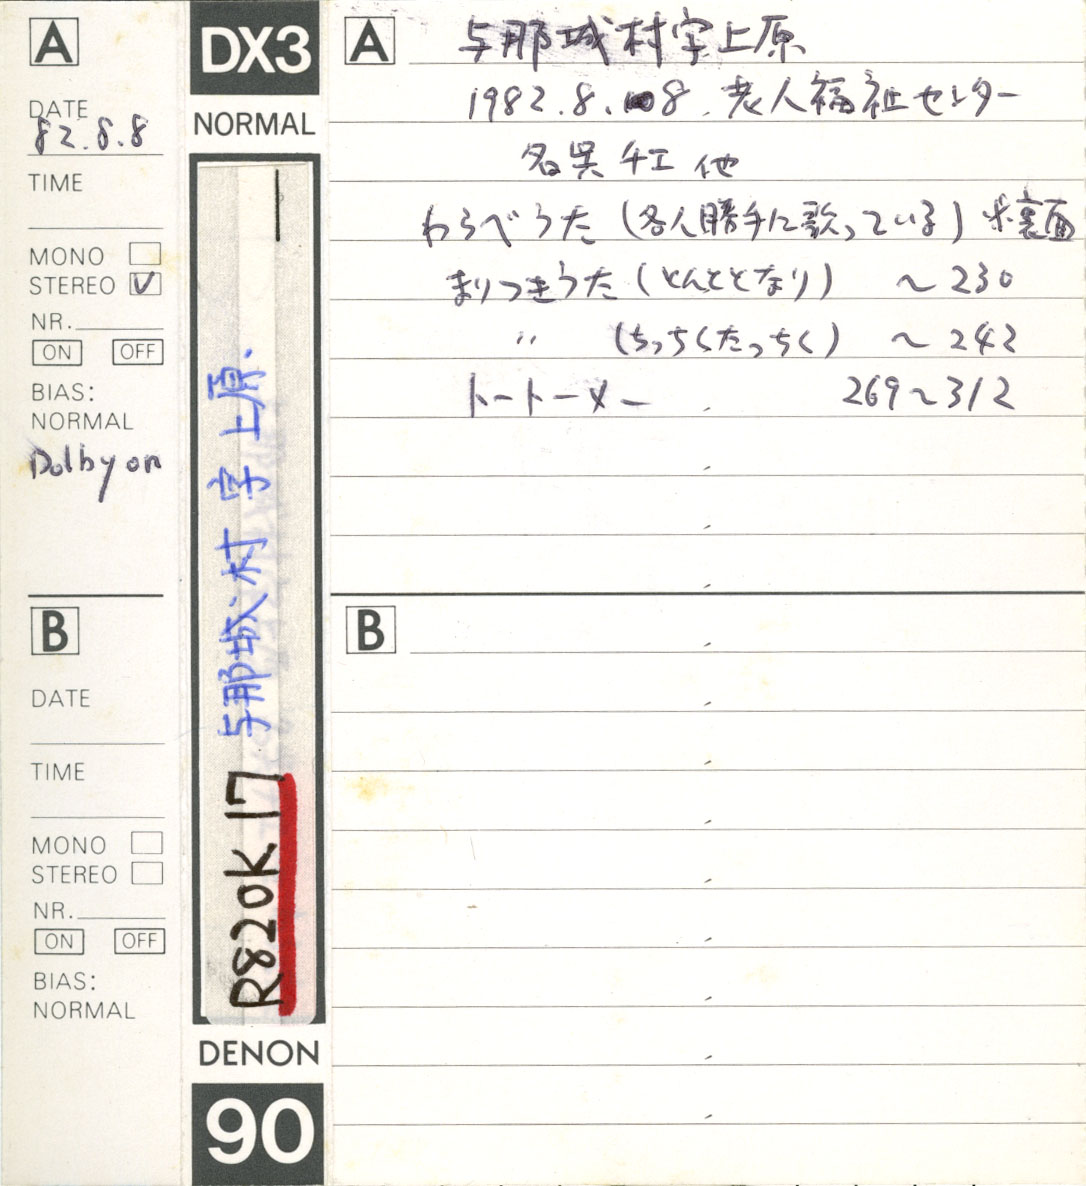 A
DATE
82.8.8
TIME
MONO
STEREO V
NR.
ON OFF
BIAS:
NORMAL
Dolby on
B
DATE
TIME
MONO
STEREO
NR.
ON OFF
BIAS:
NORMAL
DX3
NORMAL
与那城村字上原.
R820K17
DENON
90
A
与那城村字上原
1982.8.8.老人福祉センター
名呉チエ 他
わらべうた(各人勝手に歌っている)※裏面
まりつきうた(とんととなり) ~230
〃 (ちっちくたっちく) ~242
トートーメー 269~312
B